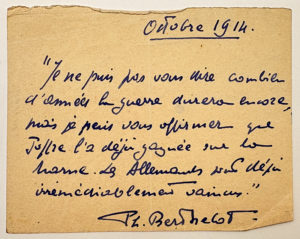 Octobre 1914.
"Je ne puis pas vous dire combien
d'années la guerre durera encore,
mais je puis vous affirmer que
Joffre l'a déjà gagnée sur la
Marne. Les Allemands sont déjà
irrémédiablement vaincus."
Ph. Berthelot.